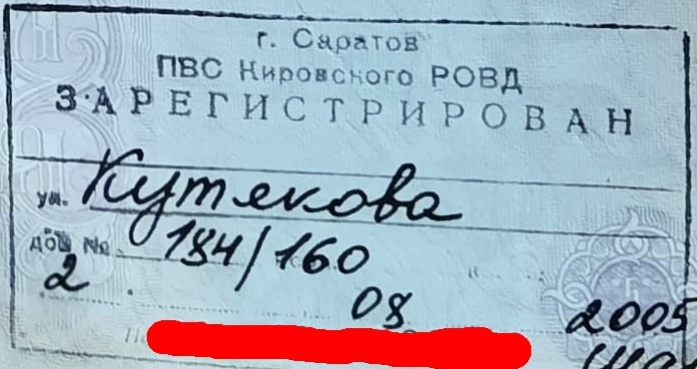 г. Саратов
ПВС Кировского РОВД
ЗАРЕГИСТРИРОВАН
ул. Кутякова
дом № 184/160
2 08 2005